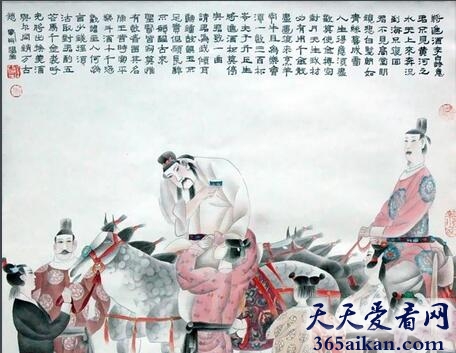 將進酒李白詩意
君不見黃河之
水天上來奔流
到海不復回
君不見高堂明
鏡悲白髮朝如
青絲暮成雪
人生得意須盡
歡莫使金樽空
對月天生我材
必有用千金散
盡還復來烹羊
宰牛且為樂會
須一飲三百杯
岑夫子丹丘生
將進酒杯莫停
與君歌一曲
請君為我傾耳
聽鐘鼓饌玉不
足貴但願長醉
不願醒古來
聖賢皆寂寞惟
有飲者留其名
陳王昔時宴平
樂斗酒十千恣
歡謔主人何為
言少錢徑須
沽取對君酌五
花馬千金裘呼
兒將出換美酒
與爾同銷萬古
愁
天天爱看网
365aikan.com